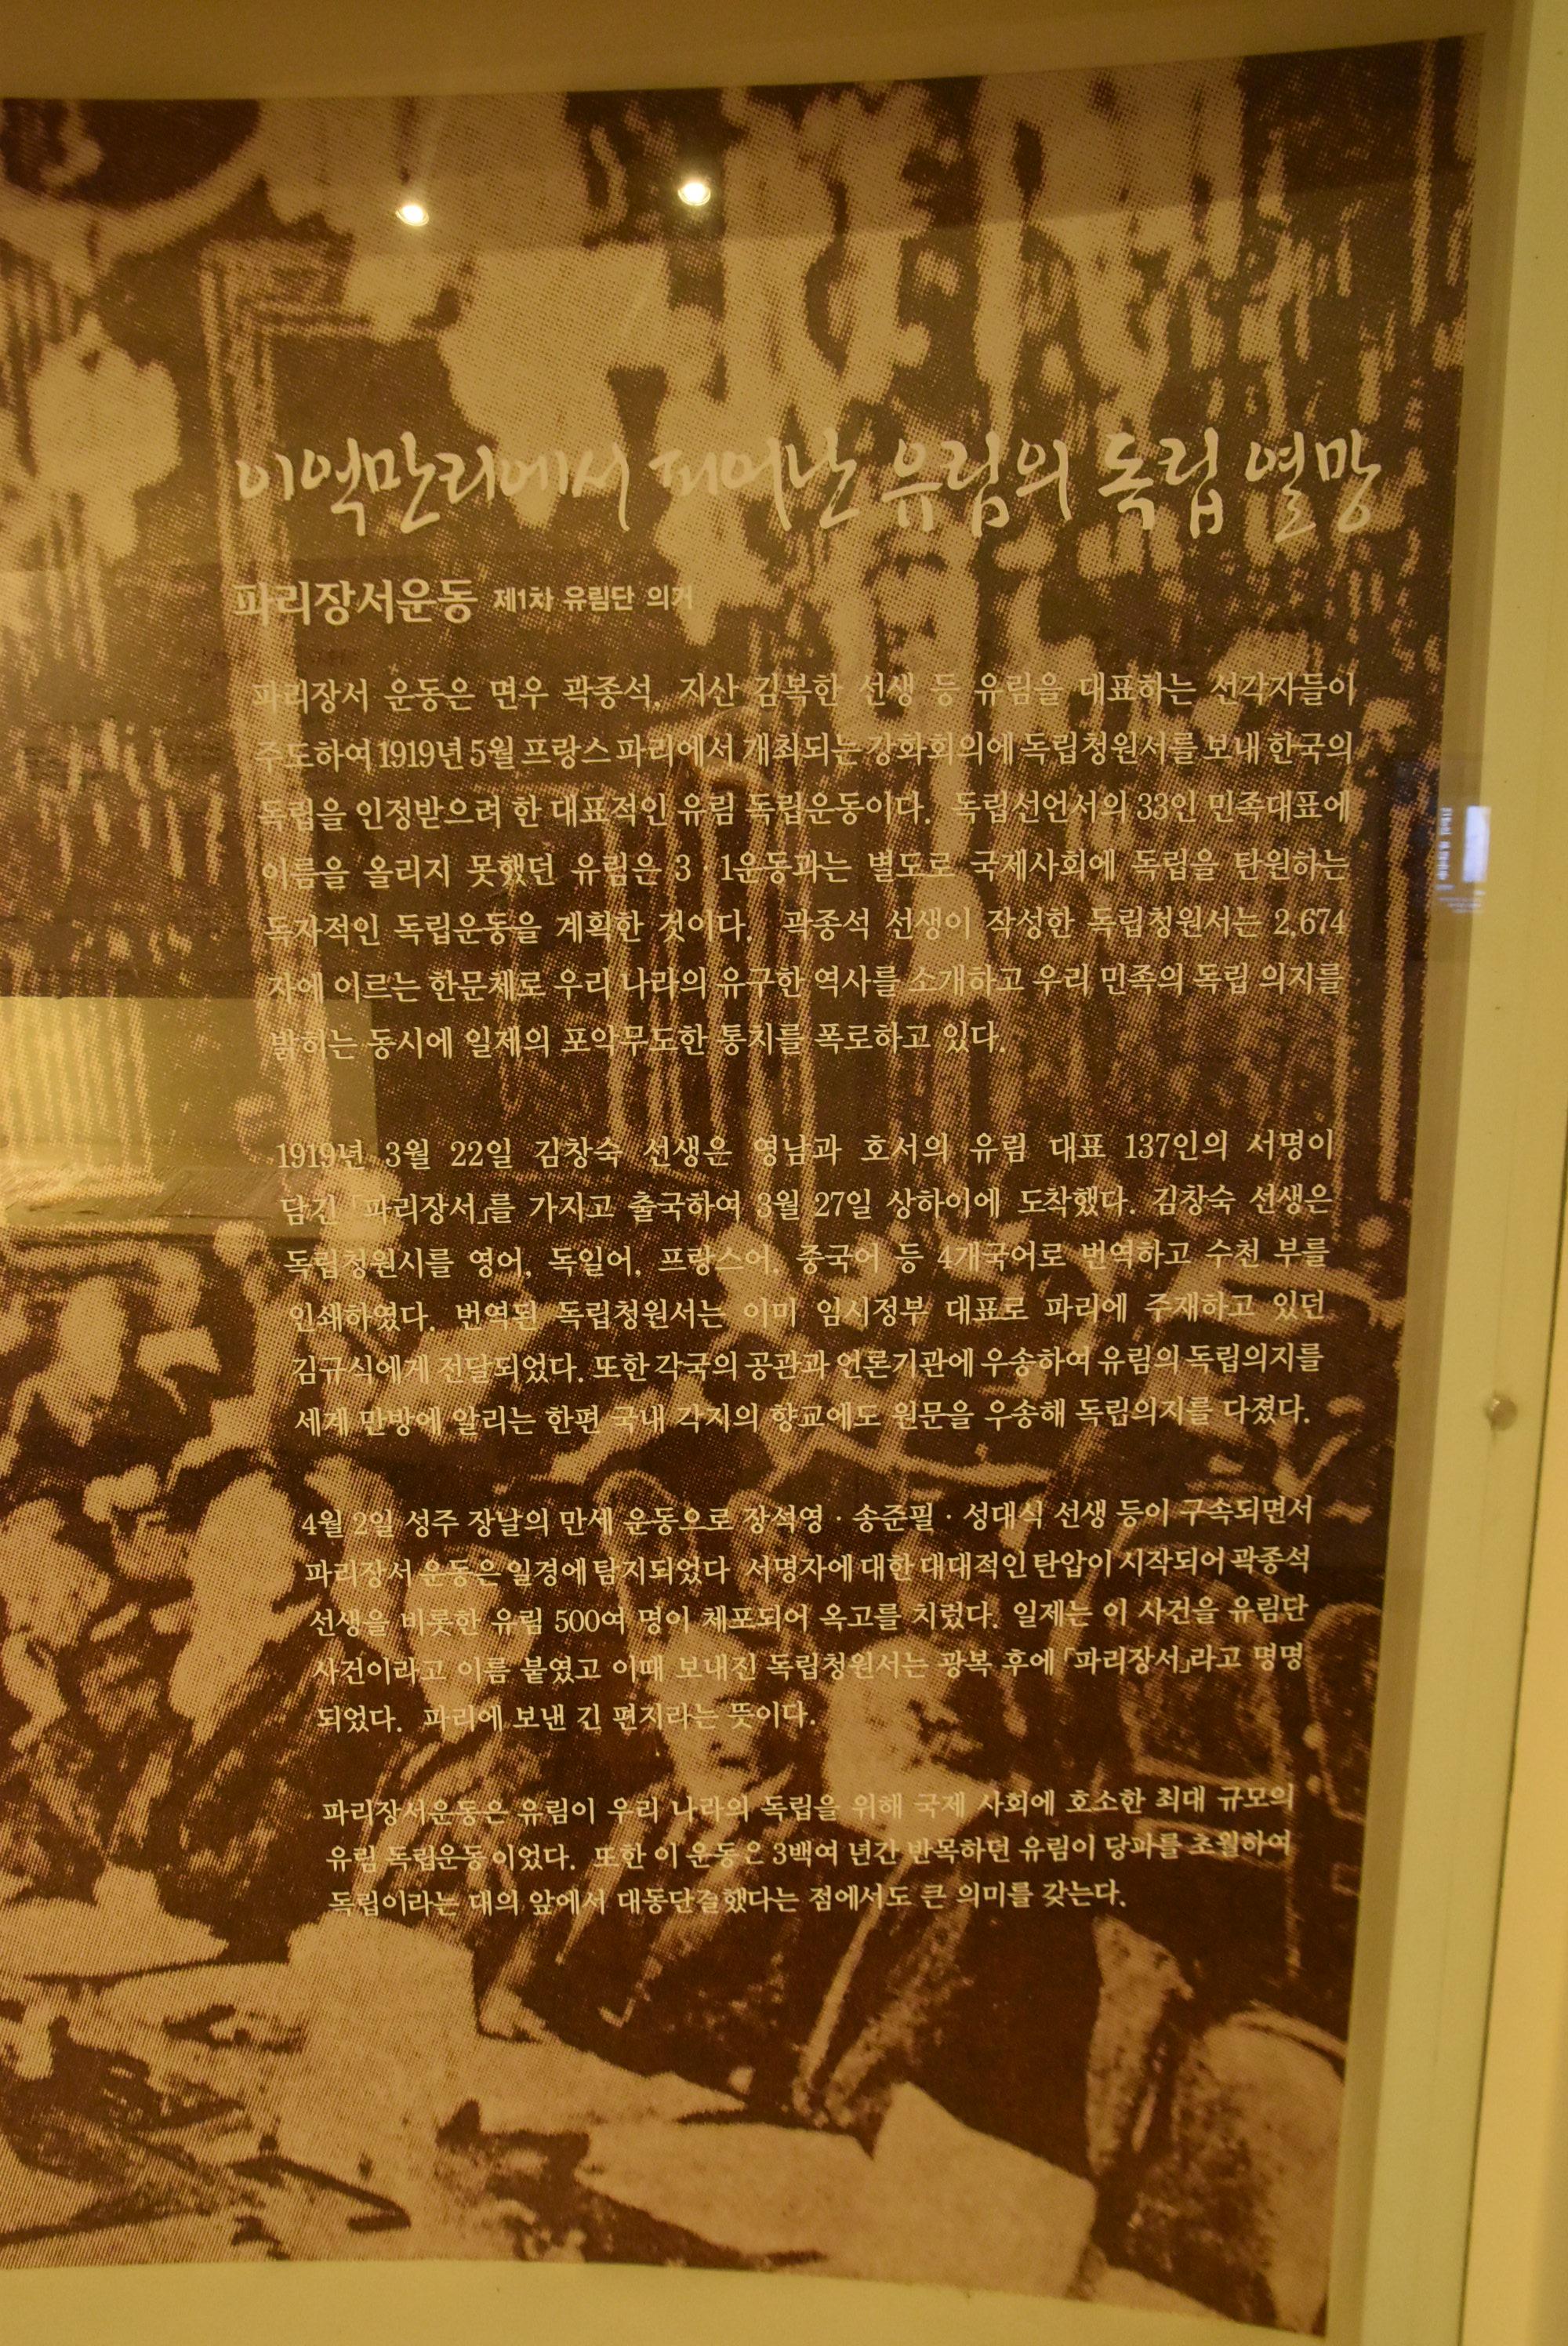 이억만리에서 피어난 유림의 독립 열망
파리장서운동 제1차 유림단 의거
파리장서 운동은 면우 곽종석, 지산 김복한 선생 등 유림을 대표하는 선각자들이
주도하여 1919년 5월 프랑스 파리에서 개최되는 강화회의에 독립청원서를 보내 한국의
독립을 인정받으려 한 대표적인 유림 독립운동이다. 독립선언서의 33인 민족대표에
이름을 올리지 못했던 유림은 3·1운동과는 별도로 국제사회에 독립을 탄원하는
독자적인 독립운동을 계획한 것이다. 곽종석 선생이 작성한 독립청원서는 2,674
자에 이르는 한문체로 우리 나라의 유구한 역사를 소개하고 우리 민족의 독립 의지를
밝히는 동시에 일제의 포악무도한 통치를 폭로하고 있다.
1919년 3월 22일 김창숙 선생은 영남과 호서의 유림 대표 137인의 서명이
담긴 「파리장서」를 가지고 출국하여 3월 27일 상하이에 도착했다. 김창숙 선생은
독립청원시를 영어, 독일어, 프랑스어, 중국어 등 4개국어로 번역하고 수천 부를
인쇄하였다. 번역된 독립청원서는 이미 임시정부 대표로 파리에 주재하고 있던
김규식에게 전달되었다. 또한 각국의 공관과 언론기관에 우송하여 유림의 독립의지를
세계 만방에 알리는 한편 국내 각지의 향교에도 원문을 우송해 독립의지를 다졌다.
4월 2일 성주 장날의 만세 운동으로 장석영·송준필·성대식 선생 등이 구속되면서
파리장서 운동은 일경에 탐지되었다 서명자에 대한 대대적인 탄압이 시작되어 곽종석
선생을 비롯한 유림 500여 명이 체포되어 옥고를 치렀다. 일제는 이 사건을 유림단
사건이라고 이름 붙였고 이때 보내진 독립청원서는 광복 후에 「파리장서」라고 명명
되었다. 파리에 보낸 긴 편지라는 뜻이다.
파리장서운동은 유림이 우리 나라의 독립을 위해 국제 사회에 호소한 최대 규모의
유림 독립운동 이었다. 또한 이 운동은 3백여 년간 반목하던 유림이 당파를 초월하여
독립이라는 대의 앞에서 대동단결했다는 점에서도 큰 의미를 갖는다.